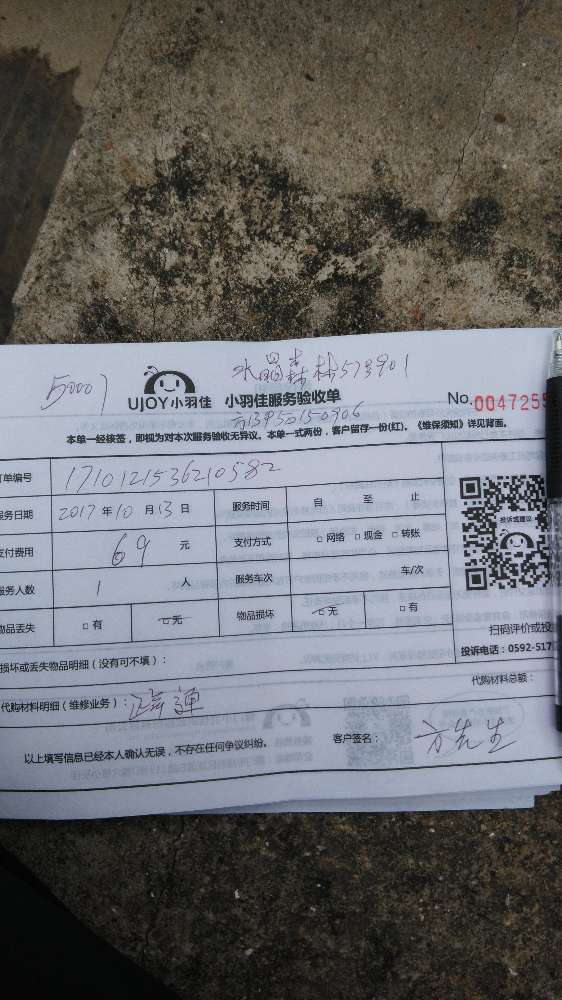 50001
水晶森林57号901
UJOY小羽佳 小羽佳服务验收单
No.0047255
方13950150906
本单一经核签，即视为对本次服务验收无异议。本单一式两份，客户留存一份(红)。《维保须知》详见背面。
订单编号 1710121536210582
服务日期 2017年10月13日 服务时间 自 至 止
支付费用 69元 支付方式 □网络 □现金 □转账
服务人数 1 人 服务车次 车/次
物品丢失 □有 □无 物品损坏 □无 □有
投诉或建议
扫码评价或投
投诉电话：0592-517
损坏或丢失物品明细（没有可不填）：
代购材料明细（维修业务）：
代购材料总额：
以上填写信息已经本人确认无误，不存在任何争议纠纷。
客户签名： 方先生